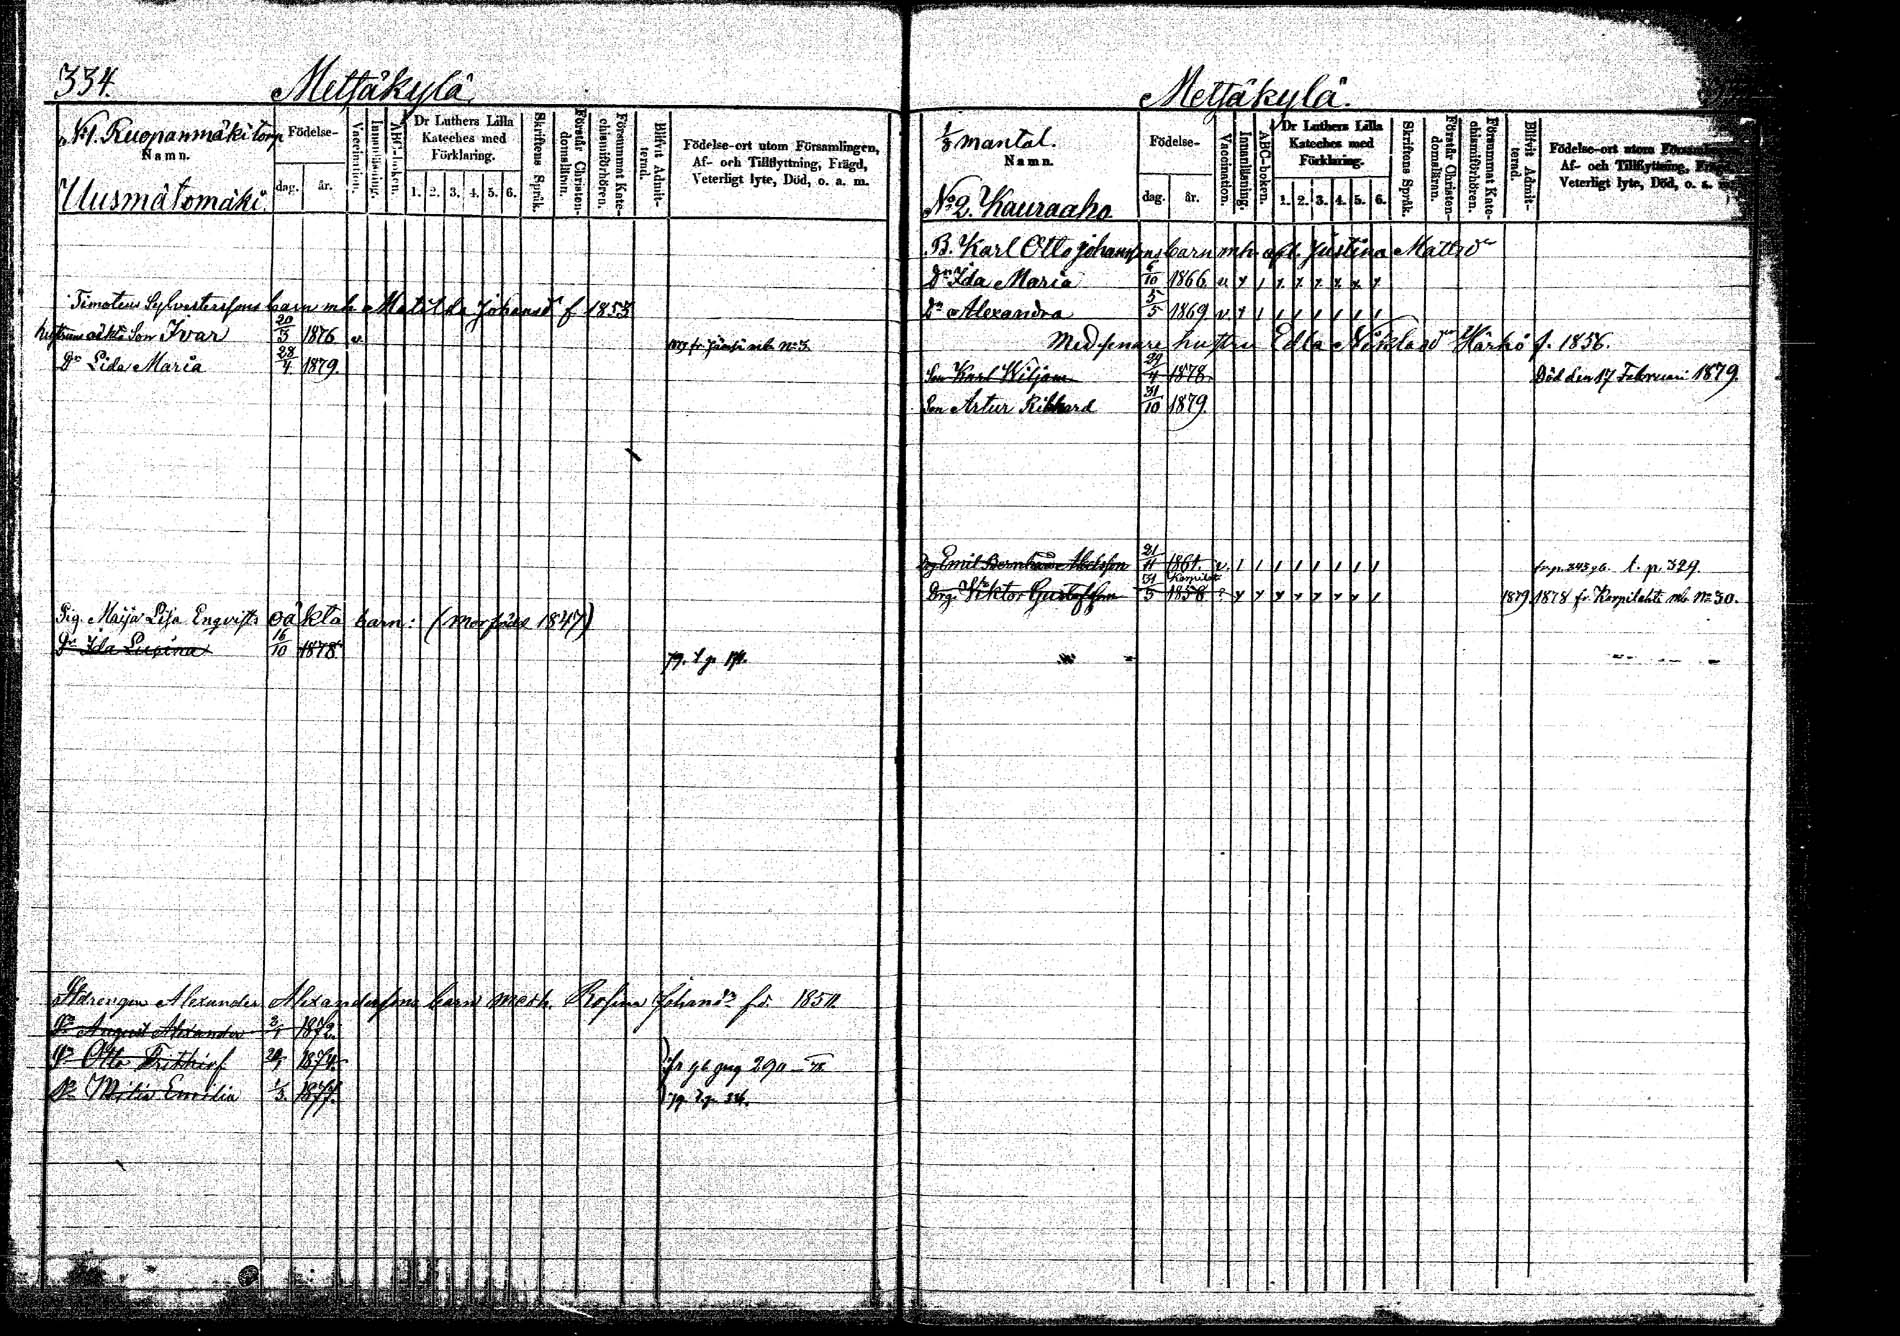 334. Metsäkylä.
No 1. Ruopanmäki torp
Namn.
Uusmätömäki.
Födelse-
dag. år.
Vaccination.
Innanläsning.
ABC-boken.
Dr Luthers Lilla Kateches med Förklaring.
1. 2. 3. 4. 5. 6.
Skriftens Språk.
Förstår Christendomsläran.
Försummat Katechismiförhören.
Blifvit Admitterad.
Födelse-ort utom Församlingen, Af- och Tillflyttning, Frägd, Veterligt lyte, Död, o. a. m.
Timoteus Sylvesterssons barn mh Matilda Johansdr f 1853
hustruns oäkta Son Ivar 20/3 1876 v. fr. Jämsä mb No 3.
Dr Lida Maria 28/4 1879.
Pig. Maija Lisa Enqvists oäkta barn: (mor född 1847)
Dr Ida Lusina 16/10 1878. 79. t. p.
Alexander Alexanderssons barn med h. Rosina Johansdr fö. 185
August Alexander 3/1 1872.
Otto Frithiof 1874. fr gb pag 290
Emilia 1/3. 1877. 79. t. p.
Metsäkylä.
1/3 mantal.
Namn.
No 2. Kauraaho.
Födelse-
dag. år.
Vaccination.
Innanläsning.
ABC-boken.
Dr Luthers Lilla Kateches med Förklaring.
1. 2. 3. 4. 5. 6.
Skriftens Språk.
Förstår Christendomsläran.
Försummat Katechismiförhören.
Blifvit Admitterad.
Födelse-ort utom Församlingen, Af- och Tillflyttning, Frägd, Veterligt lyte, Död, o. a. m.
B. Karl Otto Johanssons barn mh afl. Justina Mattsdr
Dr Ida Maria 6/10 1866. v
Dr Alexandra 5/5 1869. v
Med senare hustru Edla Niklasdr Härkö f. 1856.
Son Karl Wiljam 29/4 1878. Död den 17 Februari 1879.
Son Artur Rikhard 31/10 1879.
Drg Emil Bernhard Abelsson 21/11 1861. v. fr. p. 343 gb. t. p. 329.
Drg. Viktor Gustafsson 31/5 Korpilaks 1858 ? 1879. 1878 fr. Korpilahti mb No 30.